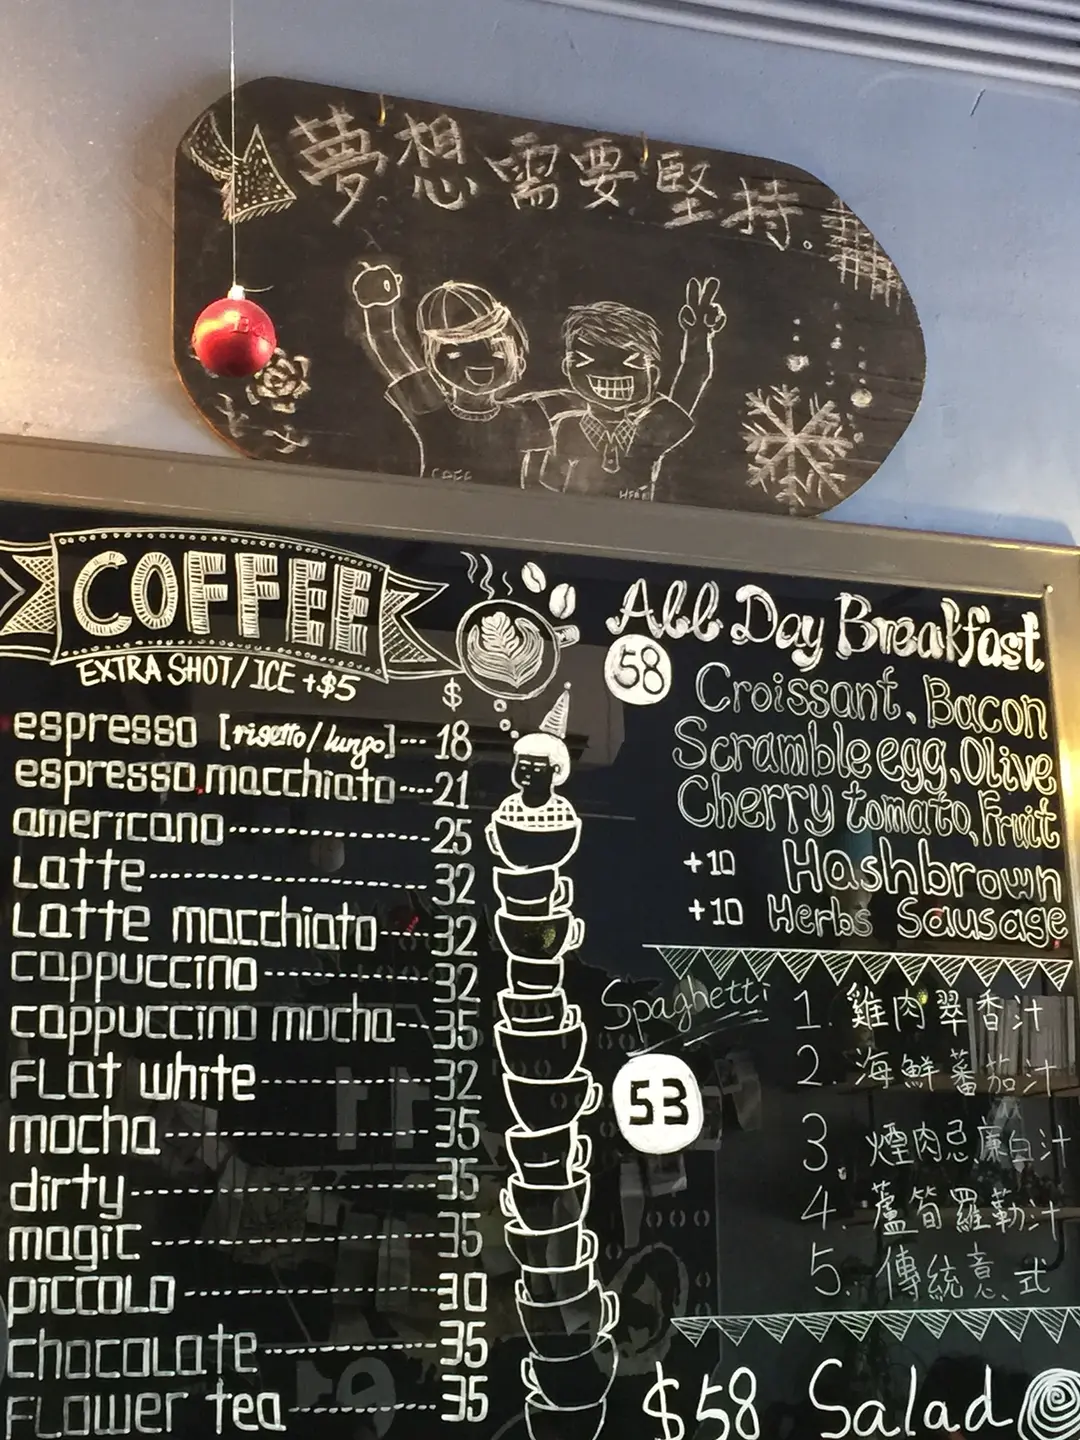 夢想需要堅持。
CAFE
COFFEE
EXTRA SHOT/ICE +$5
$
espresso [risetto/lungo]---18
espresso macchiato----21
americano---25
Latte---32
Latte macchiato---32
cappuccino---32
cappuccino mocha---35
FLat white---32
mocha---35
dirty---35
magic---35
piccolo---30
chocolate---35
FLower tea---35
All Day Breakfast
58
Croissant、Bacon
Scramble egg、Olive
Cherry tomato, Fruit
+10 Hashbrown
+10 Herbs Sausage
Spaghetti
53
1. 雞肉翠香汁
2. 海鮮蕃茄汁
3. 煙肉忌廉白汁
4. 蘆筍羅勒汁
5. 傳統意式
$58 Salad